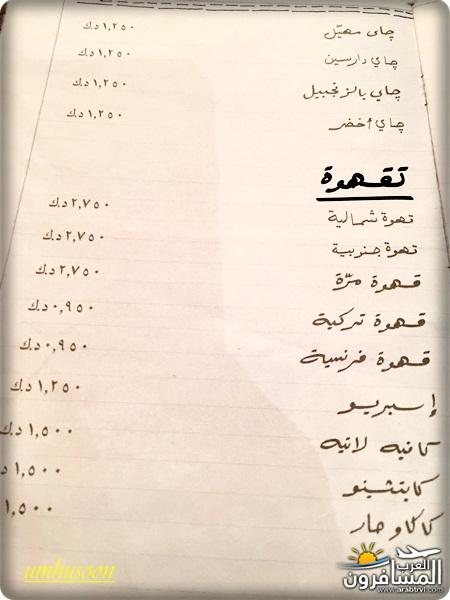 چاى مهيّل ١,٢٥٠ د.ك
چاي دارسين ١,٢٥٠ د.ك
چاي بالزنجبيل ١,٢٥٠ د.ك
چاي أخضر ١,٢٥٠ د.ك
قهوة
قهوة شمالية ٢,٧٥٠ د.ك
قهوة جنوبية ٢,٧٥٠ د.ك
قهوة مرّة ٢,٧٥٠ د.ك
قهوة تركية ٠,٩٥٠ د.ك
قهوة فرنسية ٠,٩٥٠ د.ك
إسبريو ١,٢٥٠ د.ك
كافيه لاتيه ١,٥٠٠ د.ك
كابتشينو ١,٥٠٠ د
كاكاو حار ١,٥٠٠
umhusoon
العرب المسافرون
www.arabtrvl.com